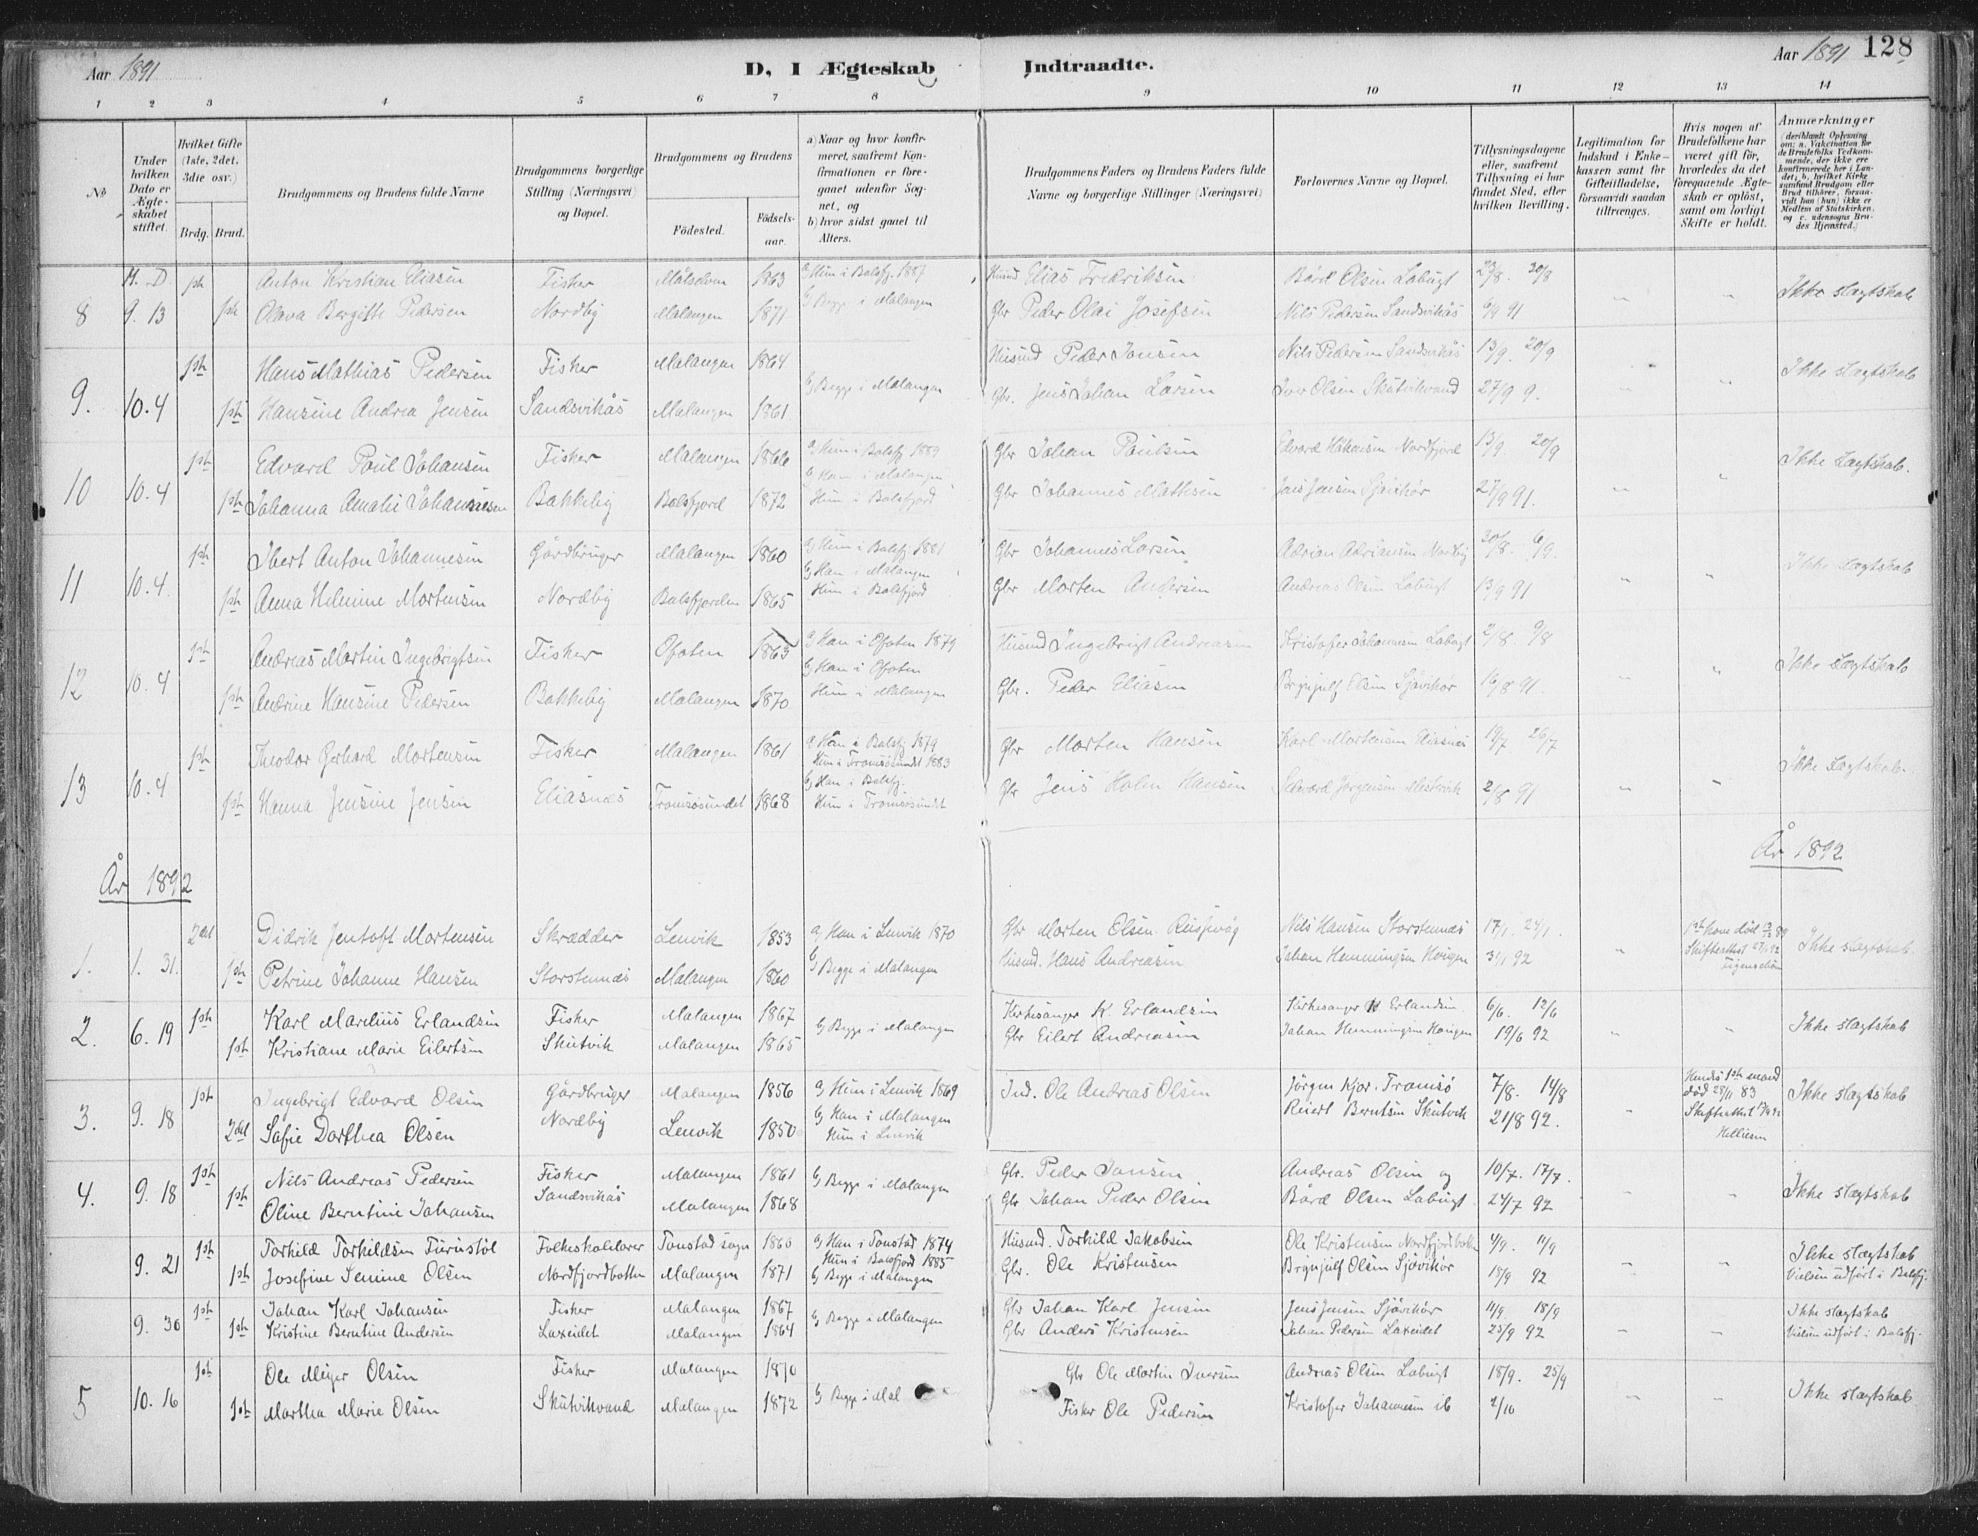 Aar 1891
D, I Ægteskab Indtraadte.
Aar 1891 128
1 2 3 4 5 6 7 8 9 10 11 12 13 14
No
Under hvilken Dato er Ægteskabet stiftet.
Hvilket Gifte (1ste, 2det, 3die osv.)
Brdg. Brud.
Brudgommens og Brudens fulde Navne
Brudgommens borgerlige Stilling (Næringsvei) og Bopæl.
Brudgommens og Brudens
Födested.
Födselsaar.
a) Naar og hvor konfirmeret, saafremt Konfirmationen er foregaaet udenfor Sognet, og
b) hvor sidst gaaet til Alters.
Brudgommens Faders og Brudens Faders fulde Navne og borgerlige Stillinger (Næringsvei)
Forlovernes Navne og Bopæl.
Tillysningsdagene eller, saafremt Tillysning ei har fundet Sted, efter hvilken Bevilling.
Legitimation for Indskud i Enkekassen samt for Giftetilladelse, forsaavidt saadan tiltrænges.
Hvis nogen af Brudefolkene har været gift för, hvorledes da det foregaaende Ægteskab er oplöst, samt om lovligt Skifte er holdt.
Anmærkninger
(deriblandt Oplysning om: a. Vakcination for de Brudefolks Vedkommende, der ikke ere konfirmerede her i Landet, b. hvilket Kirkesamfund Brudgom eller Brud tilhörer, forsaavidt han (hun) ikke er Medlem af Statskirken, og c. udensogns Brudes Hjemsted.)
M. D. 1ste Anton Kristian Eliasen Fisker Målselven 1863 a) Hun i Balsfj. 1887 Husmd Elias Fredriksen Bård Olsen Løbugt 23/8. 30/8 Ikke slægtskab
8 9. 13 1ste Olava Bergitte Pedersen Nordby Malangen 1871 b) Begge i Malangen Gbr Peder Olai Josefsen Nils Pedersen Sandsvikås 6/9 91 " "
1ste Hans Mathias Pedersen Fisker Malangen 1864 Husmd Peder Jensen Nils Pedersen Sandsvikås 13/9. 20/9 Ikke slægtskab
9. 10.4 1ste Hansine Andrea Jensen Sandsvikås Malangen 1861 b) Begge i Malangen Gbr. Jens Johan Larsen Iver Olsen Skutvikvand 27/9 9. " "
1ste Edvard Poul Johansen Fisker Malangen 1866 a) Hun i Balsfj 1889 Gbr Johan Paulsen Edvard Håkensen Nordfjord 13/9 20/9 Ikke slægtskab.
10 10.4 1ste Johanna Amalie Johannesen Bakkeby Balsfjord 1872 b) Han i Malangen Hun i Balsfjord Gbr Johannes Mathisen Jens Jensen Sjåvikør 27/9 91. " "
1ste Ibert Anton Johannesen Gårdbruger Malangen 1860 a) Hun i Balsfj 1881 Gbr Johannes Larsen Adrian Adriansen Nordby 30/8. 6/9. Ikke slægtskab
11 10.4. 1ste Anna Helmine Mortensen Nordby Balsfjorden 1865 b) Han i Malangen Hun i Balsfjord Gbr Morten Andersen Andreas Olsen Løbugt 13/9 91 " "
1ste Andreas Martin Ingebrigtsen Fisker Ofoten 1863 a) Han i Ofoten 1879 Husmd Ingebrigt Andreasen Kristofer Johannesen Løbugt 2/8 9/8 Ikke slægtskab
12 10.4 1ste Andrine Hansine Pedersen Bakkeby Malangen 1870 b) Han i Ofoten Hun i Malangen Gbr. Peder Eliasen Brynjulf Olsen Sjåvikør 16/8 91. " "
1ste Theodor Gerhard Mortensen Fisker Malangen 1861 a) Han i Balsfj 1879 Hun i Tromsøsundet 1883 Gbr Morten Hansen Karl Mortensen Eliasnes 19/7 26/7 Ikke slægtskab.
13 10.4 1ste Hanna Jensine Jensen Eliasnæs Tromsøsundet 1868 b) Han i Balsfj. Hun i Tromsøsundet Gbr Jens Holm Hansen Edevard Jørgensen Mestervik 2/8 91 " "
År 1892 År 1892
2det Didrik Jentoft Mortensen Skrædder Lenvik 1853 a) Han i Lenvik 1870 Gbr Morten Olsen Reisjvåg Nils Hansen Storstennæs 17/1. 24/1. 1ste kone død 89 Ikke slægtskab
1. 1. 31. 1ste Petrine Johanne Hansen Storstennæs Malangen 1860 b) Begge i Malangen Husmd. Hans Andreasen Johan Hemmingsen Hongen 31/1 92 " Skifteattest 27/1 92
2. 6. 19 1ste Karl Marelius Erlandsen Fisker Malangen 1867 b) Begge i Malangen Kirkesanger K. Erlandsen Kirkesanger K Erlandsen 6/6. 12/6 Ikke slægtskab
1ste Kristiane Marie Eilertsen Skutvik Malangen 1865 Gbr Eilert Andreasen Johan Hemmingsen Hongen 19/6 92 " "
1ste Ingebrigt Edvard Olsen Gårdbruger Malangen 1856 a) Hun i Lenvik 1869 Ind. Ole Andreas Olsen Jörgen Kjor. Tromsö 7/8. 14/8 Hendes 1ste mand død 28/11 83 Ikke slægtskab
3. 9. 18 2det Sofie Dorthea Olsen Nordby Lenvik 1850 b) Han i Malangen Hun i Lenvik Reiert Berntsen Skutvik 21/8 92. " Skifteattest
4. 9. 18 1ste Nils Andreas Pedersen Fisker Malangen 1861 b) Begge i Malangen Gbr. Peder Jansen Andreas Olsen og 10/7. 17/7. Ikke slægtskab
1ste Oline Berntine Johansen Sandsvikås Malangen 1868 Gbr Johan Peder Olsen Bård Olsen Løbugt 24/7 92 " "
1ste Torkild Torkildsen Furustöl Folkeskolelærer Tonstad sogn 1860 a) Han i Tonstad 1874 Hun i Balsfjord 1885 Husmd. Torkild Jakobsen Ole Kristensen Nordfjordbotten 4/9. 11/9 Ikke slægtskab
9. 21 1ste Josefine Semine Olsen Nordfjordbotten Malangen 1871 b) Begge i Malangen Gbr. Ole Kristensen Brynjulf Olsen Sjåvikør 18/9 92 " " Vielsen udført i Balsfj.
1ste Johan Karl Johansen Fisker Malangen 1867 b) Begge i Malangen Gbr Johan Karl Jensen Jens Jensen Sjåvikør 11/9 18/9 Ikke slægtskab
9. 30 1ste Kristine Berntine Andersen Laxeidet Malangen 1864 Gbr Anders Kristensen Johan Pedersen Laxeidet 25/9 92 " " Vielsen udført i Balsfj.
1ste Ole Meyer Olsen Fisker Malangen 1870 Gbr Ole Martin Iversen Andreas Olsen Løbugt 18/9. 25/9 Ikke slægtskab
5 10. 16 1ste Martha Marie Olsen Skutvikvand Malangen 1872 b) Begge i Mal Fisker Ole Pedersen Kristofer Johannesen ib 2/10 " "